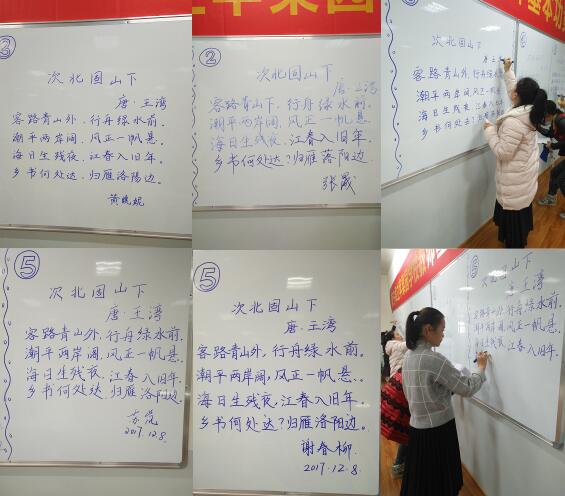 ③
次北固山下
唐·王湾
客路青山外,行舟绿水前.
潮平两岸阔,风正一帆悬.
海日生残夜,江春入旧年.
乡书何处达,归雁洛阳边.
黄晓妮
②
次北固山下
唐·王湾
客路青山下,行舟绿水前.
潮平两岸阔,风正一帆悬.
海日生残夜,江春入旧年.
乡书何处达?归雁落阳边.
张晟
基本功
次北固山下
唐 王
客路青山外,行舟绿水前.
潮平两岸阔,风正一帆悬
海日生残夜,江春入旧年
乡书何处达?归雁洛阳边
⑤
次北固山下
唐·王湾
客路青山外,行舟绿水前.
潮平两岸阔,风正一帆悬.
海日生残夜,江春入旧年.
乡书何处达,归雁洛阳边.
2017.12.8
⑤
次北固山下
唐·王湾
客路青山外,行舟绿水前.
潮平两岸阔,风正一帆悬.
海日生残夜,江春入旧年.
乡书何处达?归雁洛阳边.
谢春柳
2017.12.8
次北固山下
唐·王湾
客路青山外,行舟绿水前.
风正一帆悬.
江春入旧年.